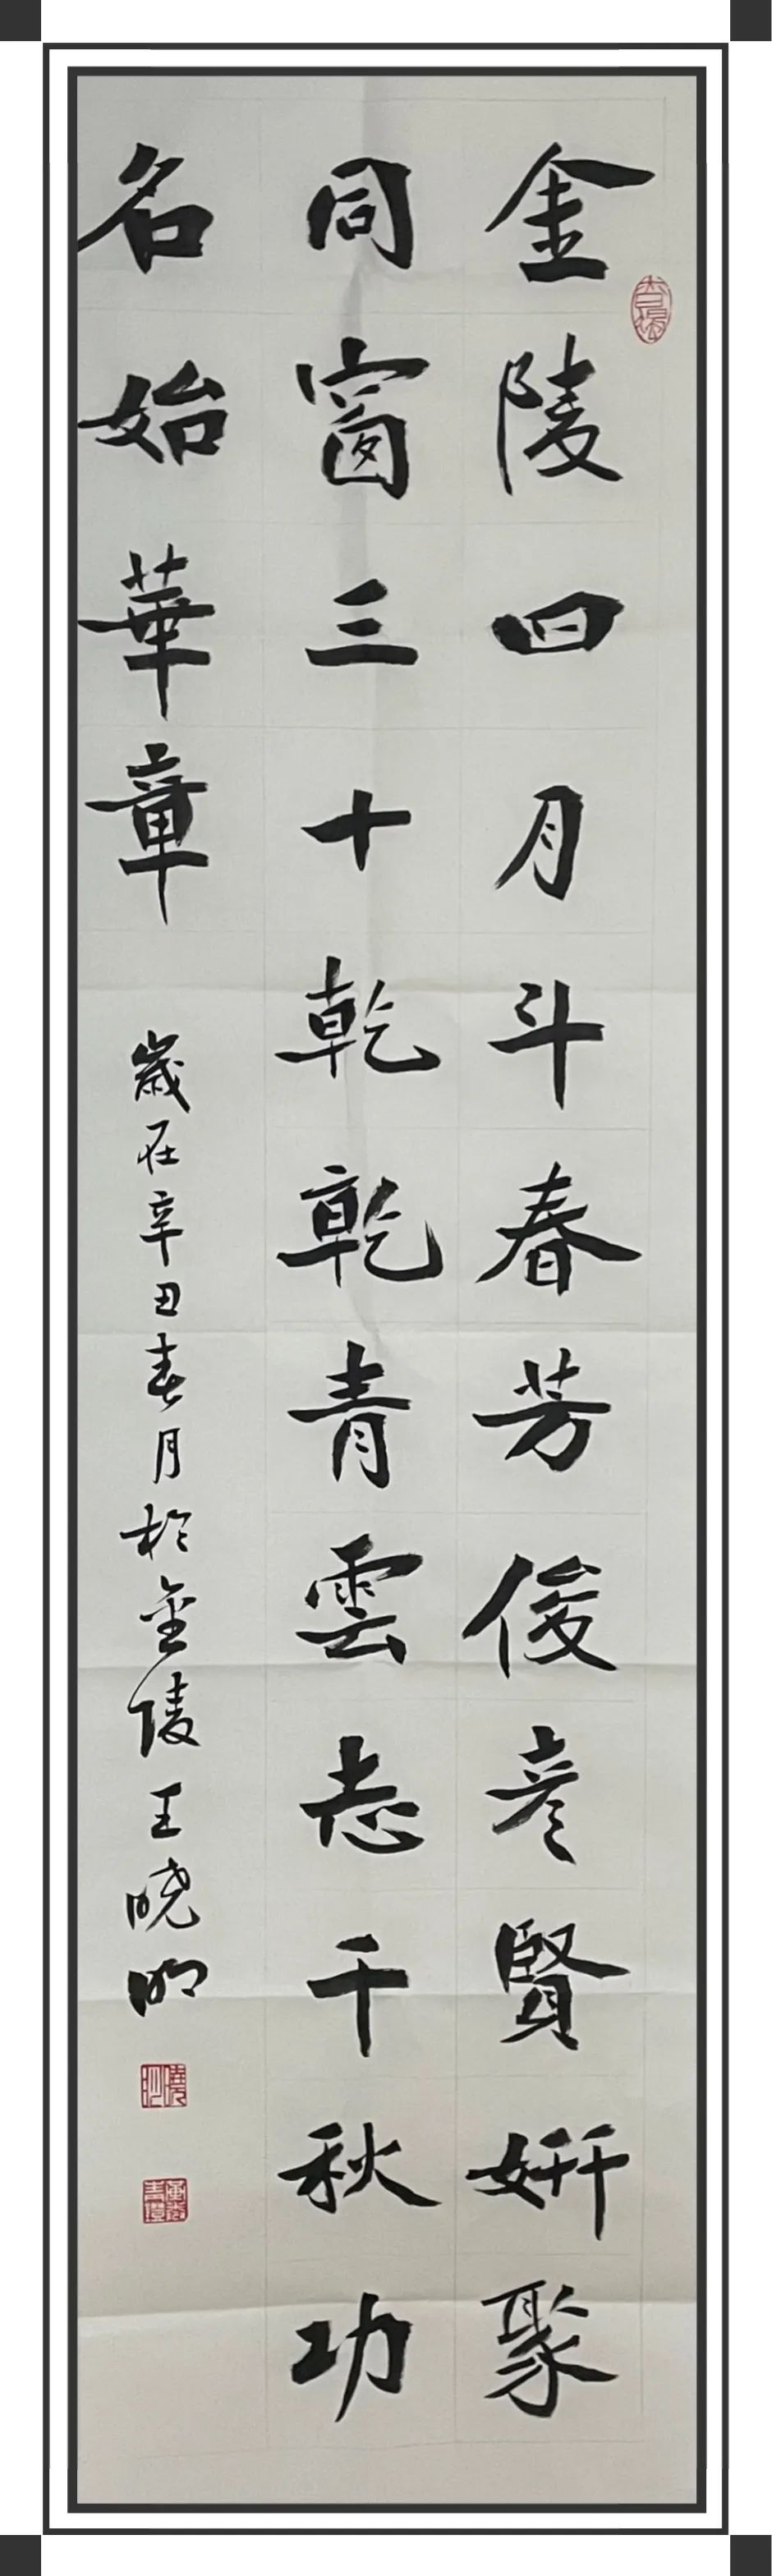 金陵四月斗春芳俊彦賢妍聚
同窗三十乾乾青雲志千秋功
名始華章
歲在辛丑春月於金陵王曉明